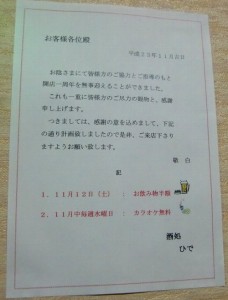 お客様各位殿
平成２３年１１月吉日
お陰さまにて皆様方のご協力とご指導のもと
開店一周年を無事迎えることができました。
これも一重に皆様方のご尽力の賜物と、感謝
申し上げます。
つきましては、感謝の意を込めまして、下記
の通り計画致しましたので是非、ご来店下さり
ますようお願い致します。
敬 白
記
１．１１月１２日（土） ： お飲み物半額
２．１１月中毎週水曜日 ： カラオケ無料
酒処
ひで